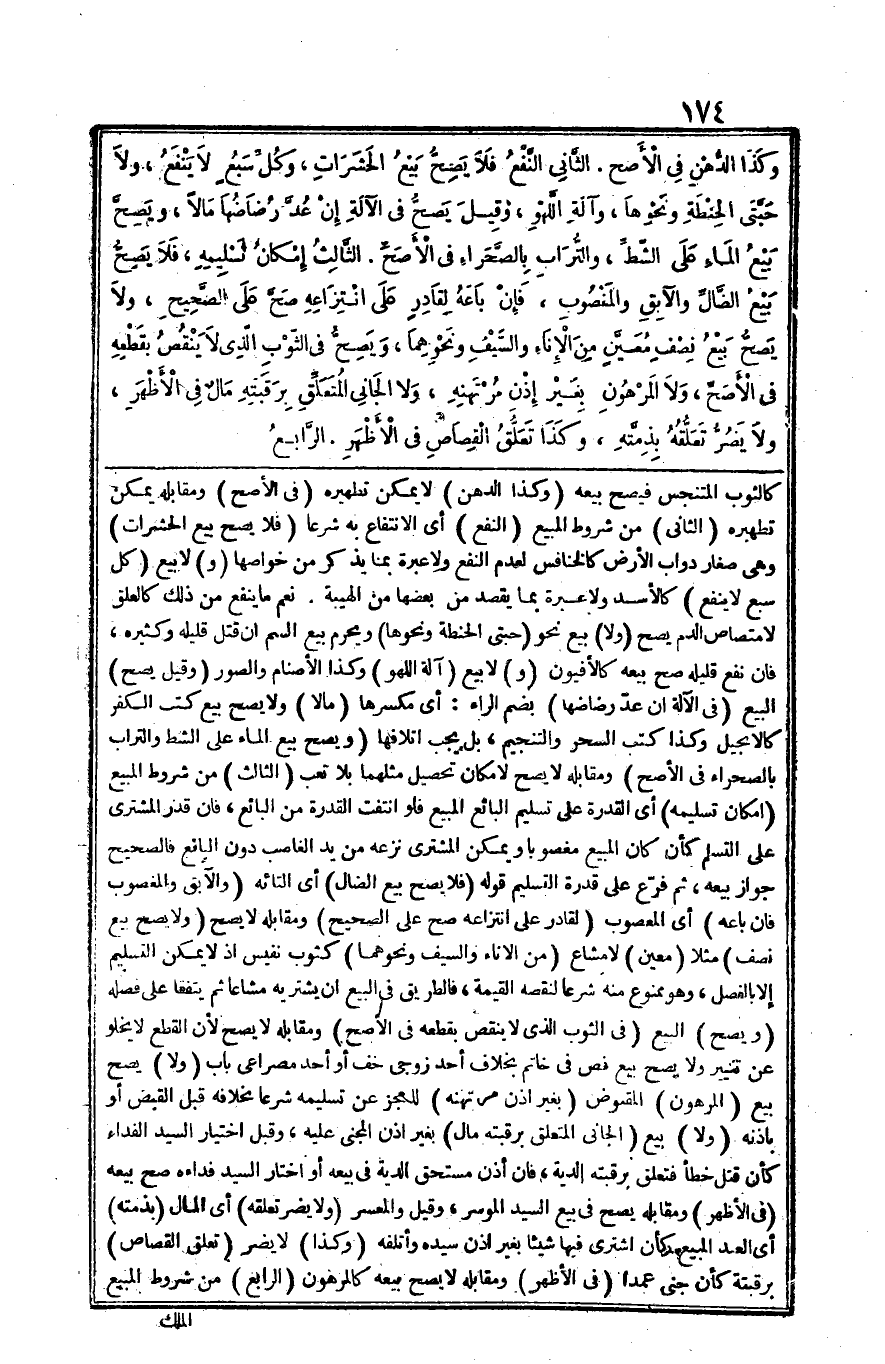 ١٧٤
وَكَذَا الدُّهْنِ فِي الْأَصح . الثَّانِي النَّفْعُ فَلَا يَصِحُّ بَيْعُ الْحَشَرَاتِ ، وَكُلِّ سَبُعٍ لَا يَنْفَعُ ، ولَا
حَبَّتَيِ الْحِنْطَةِ ونَحْوِهاَ ، وَآلةِ اللَّهْوِ ، وَقِيلَ يَصحُّ فى الآلةِ إِنْ عُدَّ رُضَاضُهَا مَالاً ، ويَصِحُّ
بَيْعُ الْمَاءِ عَلَى الشَّطِّ ، والتُّرَابِ بِالصَّحْرَاءِ فى الْأَصَحِّ . الثَّالِثُ إِمْكَانُ تَسْلِيمِهِ ، فَلَا يَصِحُّ
بَيْعُ الضَّالِّ والآبِقِ والْمَغْصُوبِ ، فَإِنْ بَاعَهُ لِقَادِرٍ عَلَى انْتِزَاعِهِ صَحَّ عَلَى الصَّحِيحِ ، ولاَ
يَصِحُّ بَيْعُ نِصْفٍ مُعَيَّنٍ مِنَ الْإِنَاءِ والسَّيْفِ ونَحْوِهِمَا ، وَيَصِحُّ فى الثَّوْبِ الَّذِى لاَ يَنْقُصُ بِقَطْعِهِ
فى الْأَصَحِّ ، وَلاَ الْمَرْهُونِ بِغَيْرِ إِذْنِ مُرْتَهِنِهِ ، وَلا الْجَانِي الْمُتَعَلِّقِ بِرَقَبَتِهِ مَالٌ فِي الْأَظْهَرِ ،
ولاَ يَضُرُّ تَعَلُّقُهُ بِذِمَّتِهِ ، وكَذَا تَعَلُّقُ الْقِصَاصِ فى الْأَظْهَرِ . الرَّابِعُ
كالثوب المتنجس فيصح بيعه ( وكذا الدهن ) لايمكن تطهيره ( فى الأصح ) ومقابله يمكن
تطهيره ( الثانى ) من شروط المبيع ( النفع ) أى الانتفاع به شرعا ( فلا يصح بيع الحشرات )
وهى صغار دواب الأرض كالخنافس لعدم النفع ولاعبرة بما يذكر من خواصها ( و ) لابيع ( كل
سبع لاينفع ) كالأسد ولاعبرة بما يقصد من بعضها من الهيبة . نعم ماينفع من ذلك كالعلق
لامتصاص الدم يصح (ولا) بيع نحو (حبتى الحنطة ونحوها) ويحرم بيع السم ان قتل قليله وكثيره ،
فان نفع قليله صح بيعه كالأفيون ( و ) لابيع ( آلة اللهو ) وكذا الأصنام والصور ( وقيل يصح )
البيع ( فى الآلة ان عدّ رضاضها ) بضم الراء : أى مكسرها ( مالا ) ولايصح بيع كتب الكفر
كالانجيل وكذا كتب السحر والتنجيم ، بل يجب اتلافها ( ويصح بيع الماء على الشط والتراب
بالصحراء فى الأصح ) ومقابله لايصح لامكان تحصيل مثلهما بلا تعب ( الثالث ) من شروط المبيع
(امكان تسليمه) أى القدرة على تسليم البائع المبيع فلو انتفت القدرة من البائع ، فان قدر المشترى
على التسلم كأن كان المبيع مغصوبا ويمكن المشترى نزعه من يد الغاصب دون البائع فالصحيح
جواز بيعه ، ثم فرّع على قدرة التسليم قوله (فلايصح بيع الضال) أى التائه ( والآبق والمغصوب
فان باعه ) أى المغصوب ( لقادر على انتزاعه صح على الصحيح ) ومقابله لايصح ( ولايصح بيع
نصف ) مثلا ( معين ) لامشاع ( من الاناء والسيف ونحوهما ) كثوب نفيس اذ لايمكن التسليم
إلابالفصل ، وهو ممنوع منه شرعا لنقصه القيمة ، فالطريق فى البيع ان يشتريه مشاعا ثم يتفقا على فصله
( ويصح ) البيع ( فى الثوب الذى لاينقص بقطعه فى الأصح ) ومقابله لايصح لأن القطع لايخلو
عن تغيير ولا يصح بيع فص فى خاتم بخلاف أحد زوجى خف أو أحد مصراعى باب ( ولا ) يصح
بيع ( المرهون ) المقبوض ( بغير اذن مرتهنه ) للعجز عن تسليمه شرعا بخلافه قبل القبض أو
باذنه ( ولا ) بيع ( الجانى المتعلق برقبته مال ) بغير اذن المجنى عليه ، وقبل اختيار السيد الفداء
كأن قتل خطأ فتعلق برقبته الدية ، فان أذن مستحق الدية فى بيعه أو اختار السيد فداءه صح بيعه
(فى الأظهر) ومقابله يصح فى بيع السيد الموسر ، وقيل والمعسر (ولايضر تعلقه) أى المال (بذمته)
أى العبد المبيع كأن اشترى فيها شيئا بغير اذن سيده وأتلفه ( وكذا ) لايضر ( تعلق القصاص )
برقبتة كأن جنى عمدا ( فى الأظهر ) ومقابله لايصح بيعه كالمرهون ( الرابع ) من شروط المبيع
الملك